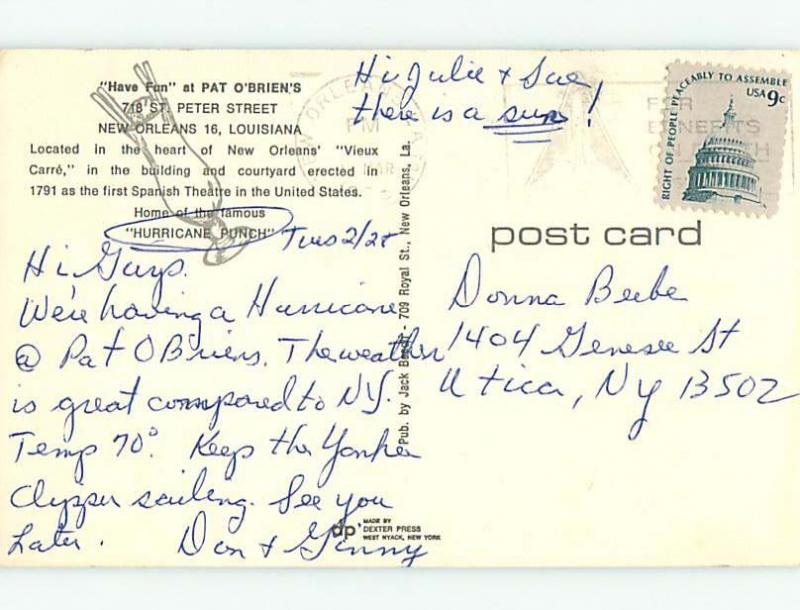 "Have Fun" at PAT O'BRIEN'S
718 ST. PETER STREET
NEW ORLEANS 16, LOUISIANA
Located in the heart of New Orleans' "Vieux
Carré," in the building and courtyard erected in
1791 as the first Spanish Theatre in the United States.
Home of the famous
"HURRICANE PUNCH"
Tues 2/28
Hi Guys.
We're having a Hurricane
@ Pat OBriens. The weather
is great compared to NY.
Temp 70°. Keep the Yonker
Clipper sailing. See you
Later. Don & Ginny
Hi Julie & Sue
there is a sun!
NEW ORLEANS, LA
PM
MAR
FOR
BENEFITS
RIGHT OF PEOPLE PEACEABLY TO ASSEMBLE
USA 9c
Pub. by Jack Beech - 709 Royal St., New Orleans, La.
post card
Donna Beebe
1404 Genesee St
Utica, Ny 13502
dp
MADE BY
DEXTER PRESS
WEST NYACK, NEW YORK